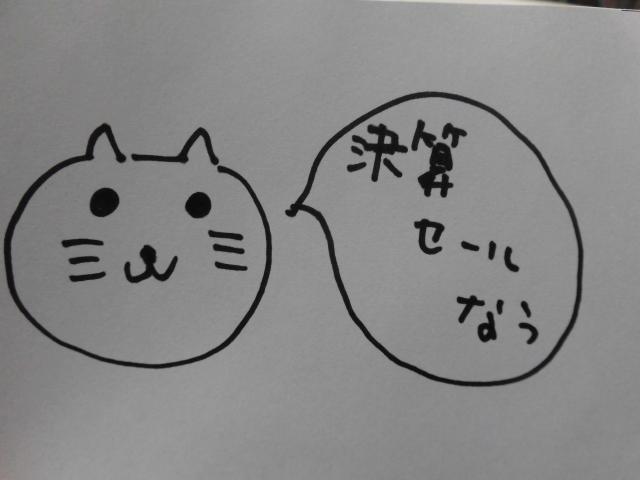 決算
セール
なう